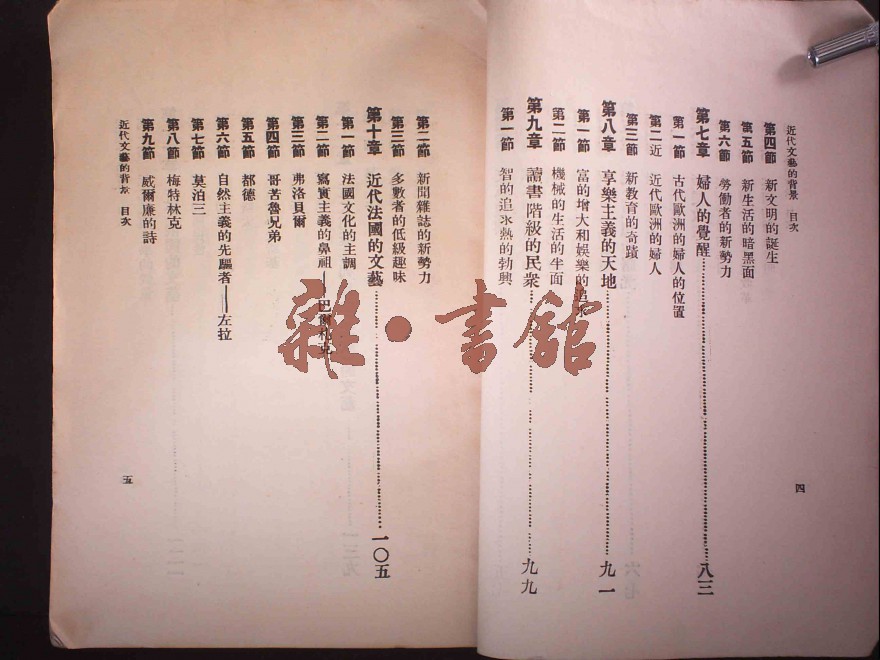 近代文藝的背景 目次
第四節 新文明的誕生
第五節 新生活的暗黑面
第六節 勞働者的新勢力
第七章 婦人的覺醒……八三
第一節 古代歐洲的婦人的位置
第二近 近代歐洲的婦人
第三節 新教育的奇蹟
第八章 享樂主義的天地……九一
第一節 富的增大和娛樂的追求
第二節 機械的生活的半面
第九章 讀書階級的民衆……九九
第一節 智的追求熱的勃興
四
第二節 新聞雜誌的新勢力
第三節 多數者的低級趣味
第十章 近代法國的文藝……一〇五
第一節 法國文化的主調
第二節 寫實主義的鼻祖——巴爾札克
第三節 弗洛貝爾
第四節 哥苦魯兄弟
第五節 都德
第六節 自然主義的先驅者——左拉
第七節 莫泊三
第八節 梅特林克
第九節 威爾廉的詩
近代文藝的背景 目次
五
雜·書館